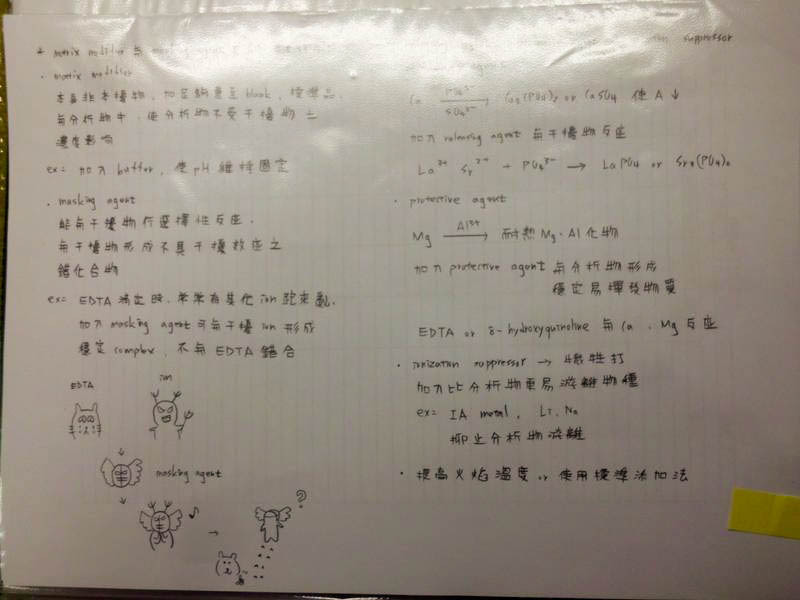 * matrix modifier 與 masking agent
suppressor
. matrix modifier
本身非本擾物, 加足夠量至 blank, 標準品,
與分析物中, 使分析物不受干擾物之
濃度影響
ex= 加入 buffer, 使 pH 維持固定
. masking agent
能與干擾物行選擇性反應,
與干擾物形成不具干擾效應之
錯化合物
ex= EDTA 滴定時, 常常有其他 ion 跑來亂,
加入 masking agent 可與干擾 ion 形成
穩定 complex, 不與 EDTA 錯合
EDTA
ion
masking agent
♪
?
Ca PO₄³⁻ SO₄²⁻ → Ca₃(PO₄)₂ or CaSO₄ 使 A ↓
加入 releasing agent 與干擾物反應
La³⁺ Sr²⁺ + PO₄³⁻ → LaPO₄ or Sr₃(PO₄)₂
. protective agent
Mg Al³⁺ → 耐熱 Mg. Al 化物
加入 protective agent 與分析物形成
穩定易揮發物質
EDTA or 8-hydroxyquinoline 與 Ca. Mg 反應
. ionization suppressor → 犧牲打
加入比分析物更易游離物種
ex= IA metal, Li, Na
抑止分析物游離
. 提高火焰溫度 or 使用標準添加法